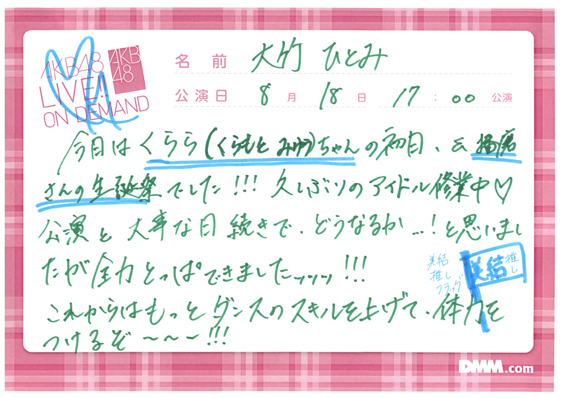 AKB48
LIVE!!
ON DEMAND
AKB
48
名前 大竹 ひとみ
公演日 8月 18日 17:00 公演
今日は くらら(くらもと みゆ)ちゃん の初日、& 播磨
さんの生誕祭 でした!!! 久しぶりのアイドル修業中♡
公演と 大事な日 続きで、どうなるか…!と思いまし
たが全力とっぱできましたッッッ!!!
美結
推し
フラッグ
美結 推し
これからはもっと ダンスのスキルを上げて、体力を
つけるぞ〜〜〜!!!
DMM.com